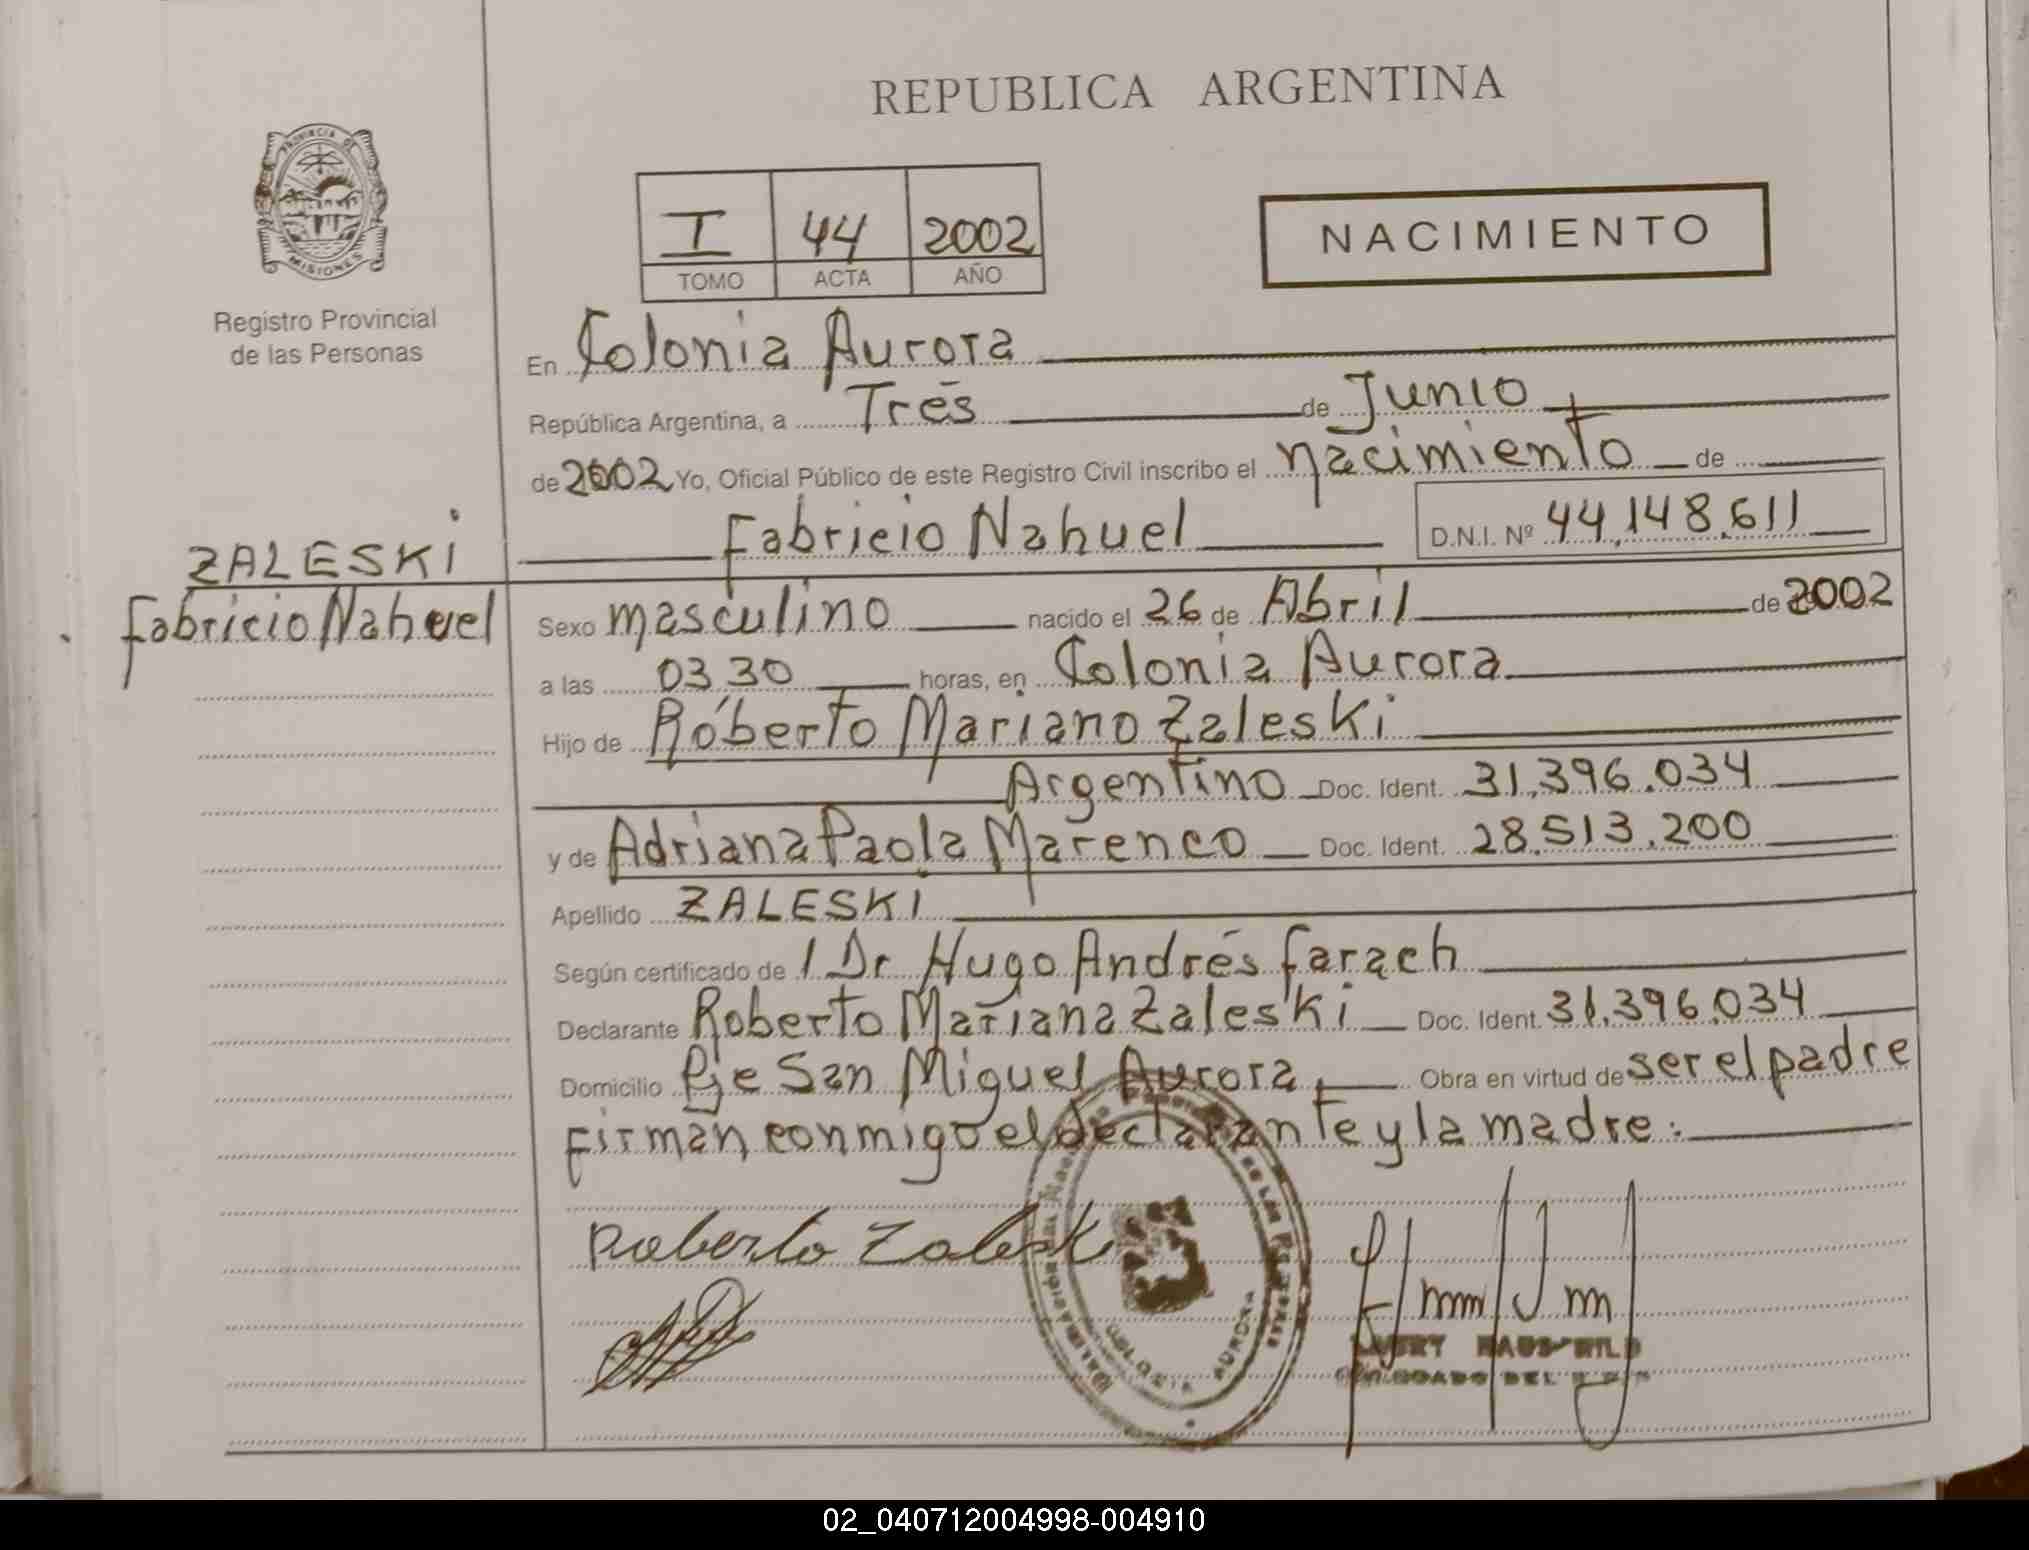 REPUBLICA ARGENTINA
PROVINCIA DE
MISIONES
Registro Provincial
de las Personas
I 44 2002
TOMO ACTA AÑO
NACIMIENTO
En Colonia Aurora
República Argentina, a Tres de Junio
de 2002 Yo, Oficial Público de este Registro Civil inscribo el nacimiento de
Fabricio Nahuel D.N.I. Nº 44.148.611
ZALESKI
Fabricio Nahuel
Sexo masculino nacido el 26 de Abril de 2002
a las 03 30 horas, en Colonia Aurora
Hijo de Roberto Mariano Zaleski
Argentino Doc. Ident. 31.396.034
y de Adriana Paola Marenco Doc. Ident. 28.513.200
Apellido ZALESKI
Según certificado de l Dr Hugo Andrés Farach
Declarante Roberto Mariana Zaleski Doc. Ident. 31.396.034
Domicilio Pje San Miguel Aurora Obra en virtud de ser el padre
Firman conmigo el declarante y la madre:
Roberto Zaleski
COLONIA AURORA
02_040712004998-004910